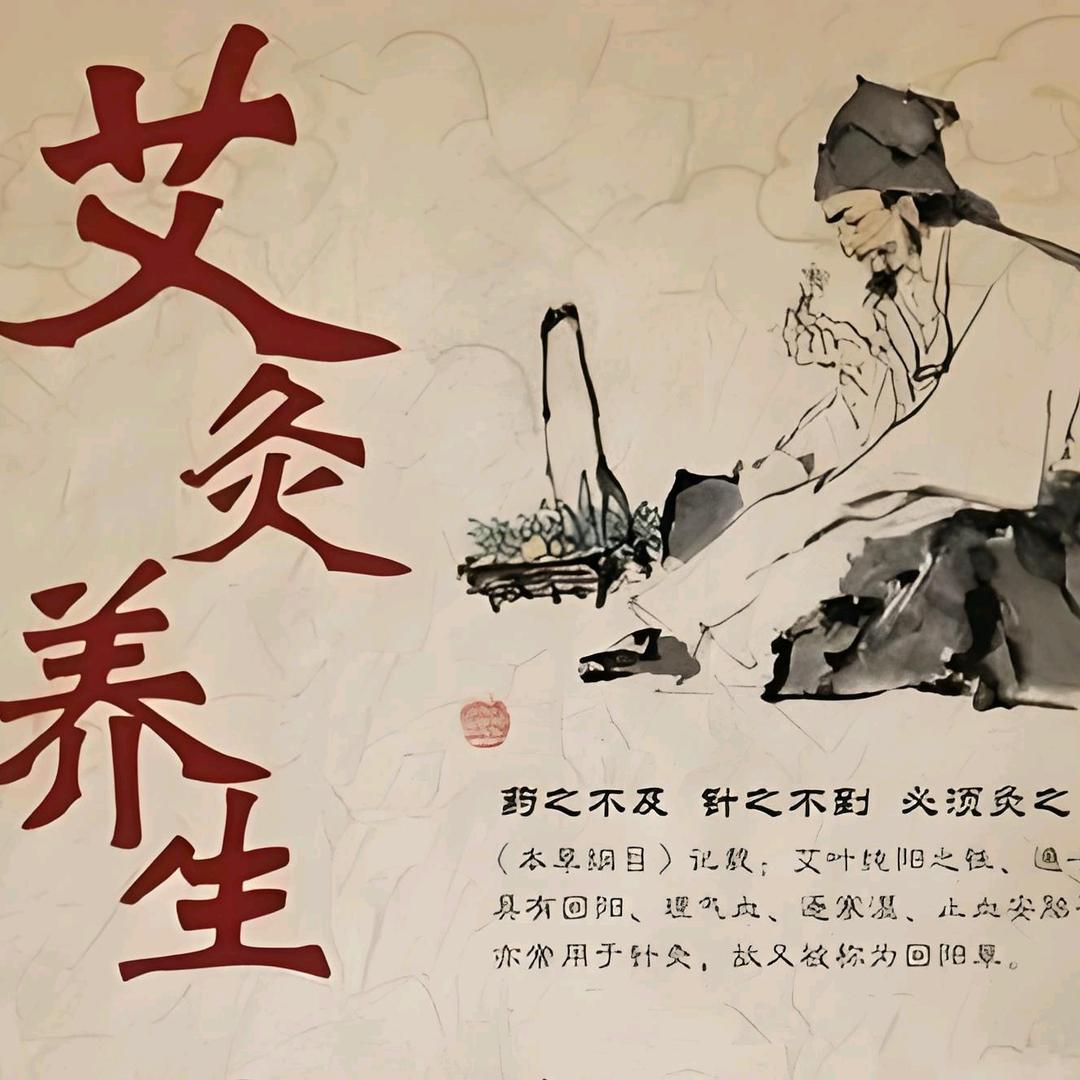 艾灸养生
药之不及 针之不到 必须灸之
《本草纲目》记载：艾叶纯阳之
具有回阳、理气血、逐寒湿、止血安胎
亦常用于针灸，故又被称为回阳草。